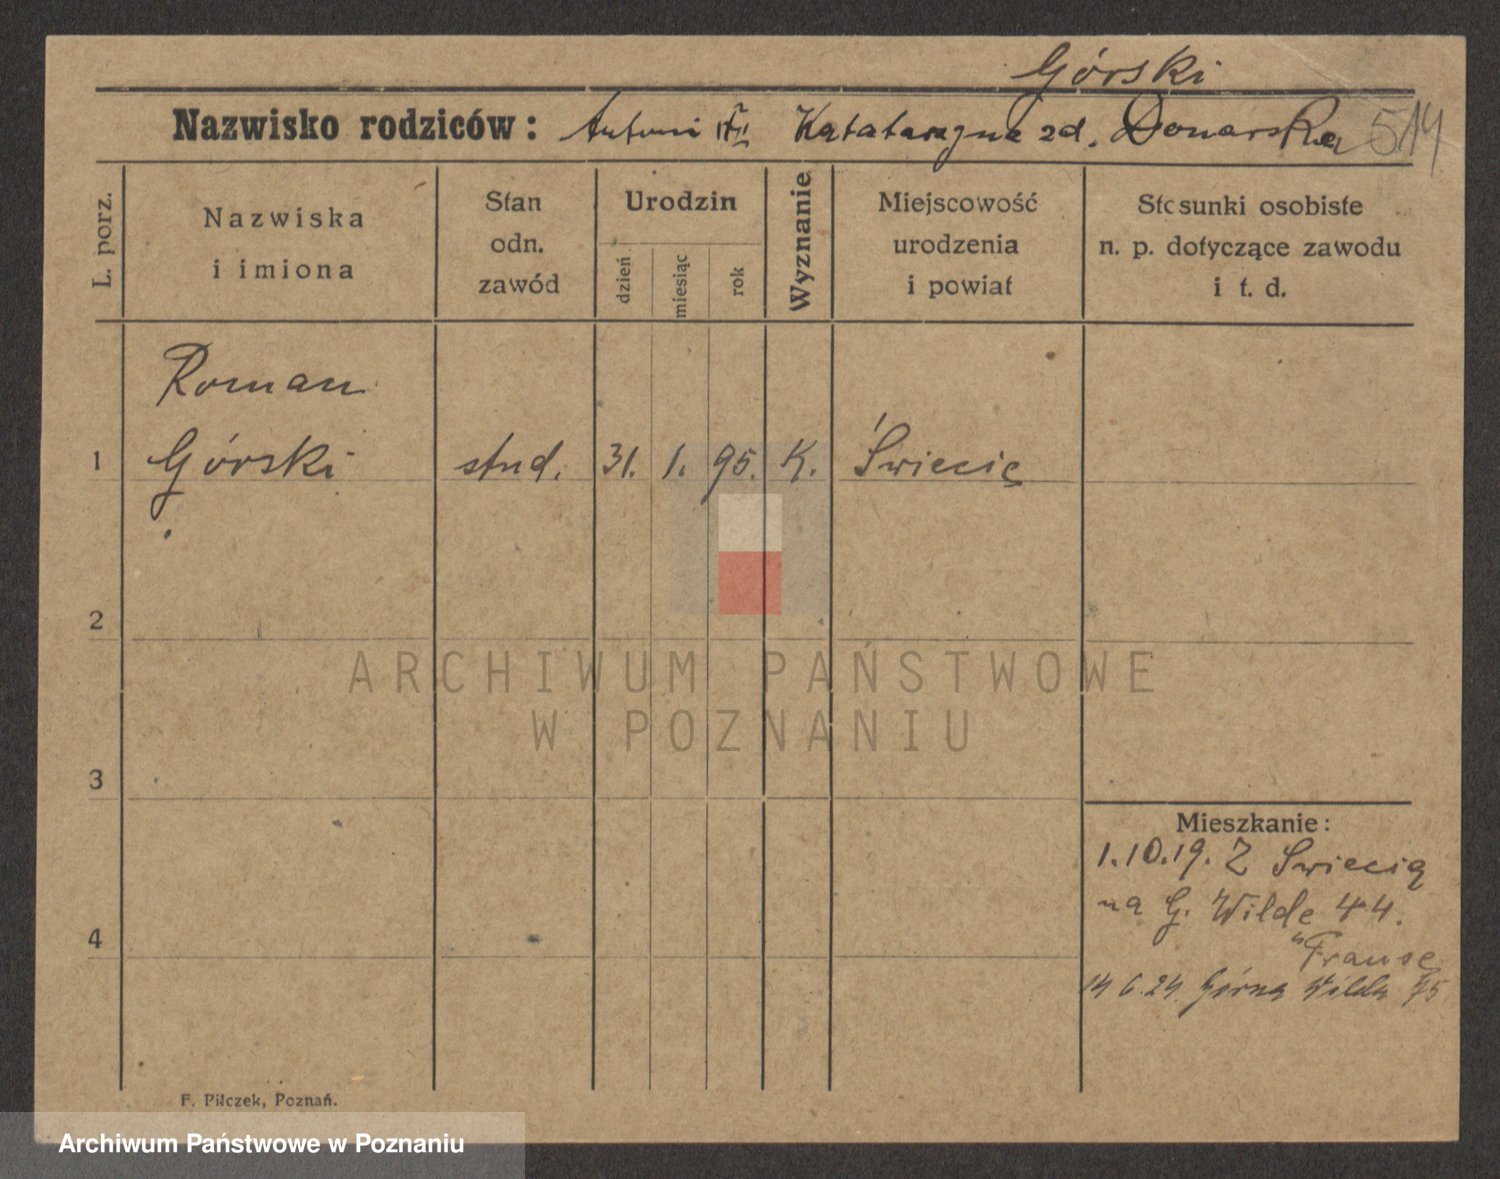 Górski
Nazwisko rodziców: Antoni Katatarzyna zd. Donarska 514
L. porz.
Nazwiska
i imiona
Stan
odn.
zawód
Urodzin
dzień
miesiąc
rok
Wyznanie
Miejscowość
urodzenia
i powiat
Stosunki osobiste
n. p. dotyczące zawodu
i t. d.
Roman
1 Górski stud. 31. 1. 95. K. Świecie
2
ARCHIWUM PAŃSTWOWE
W POZNANIU
3
Mieszkanie:
1.10.19. Z Swiecią
na G. Wilde 44.
4
14 6.24. Górna Wilda 75
F. Pilczek, Poznań.
Archiwum Państwowe w Poznaniu